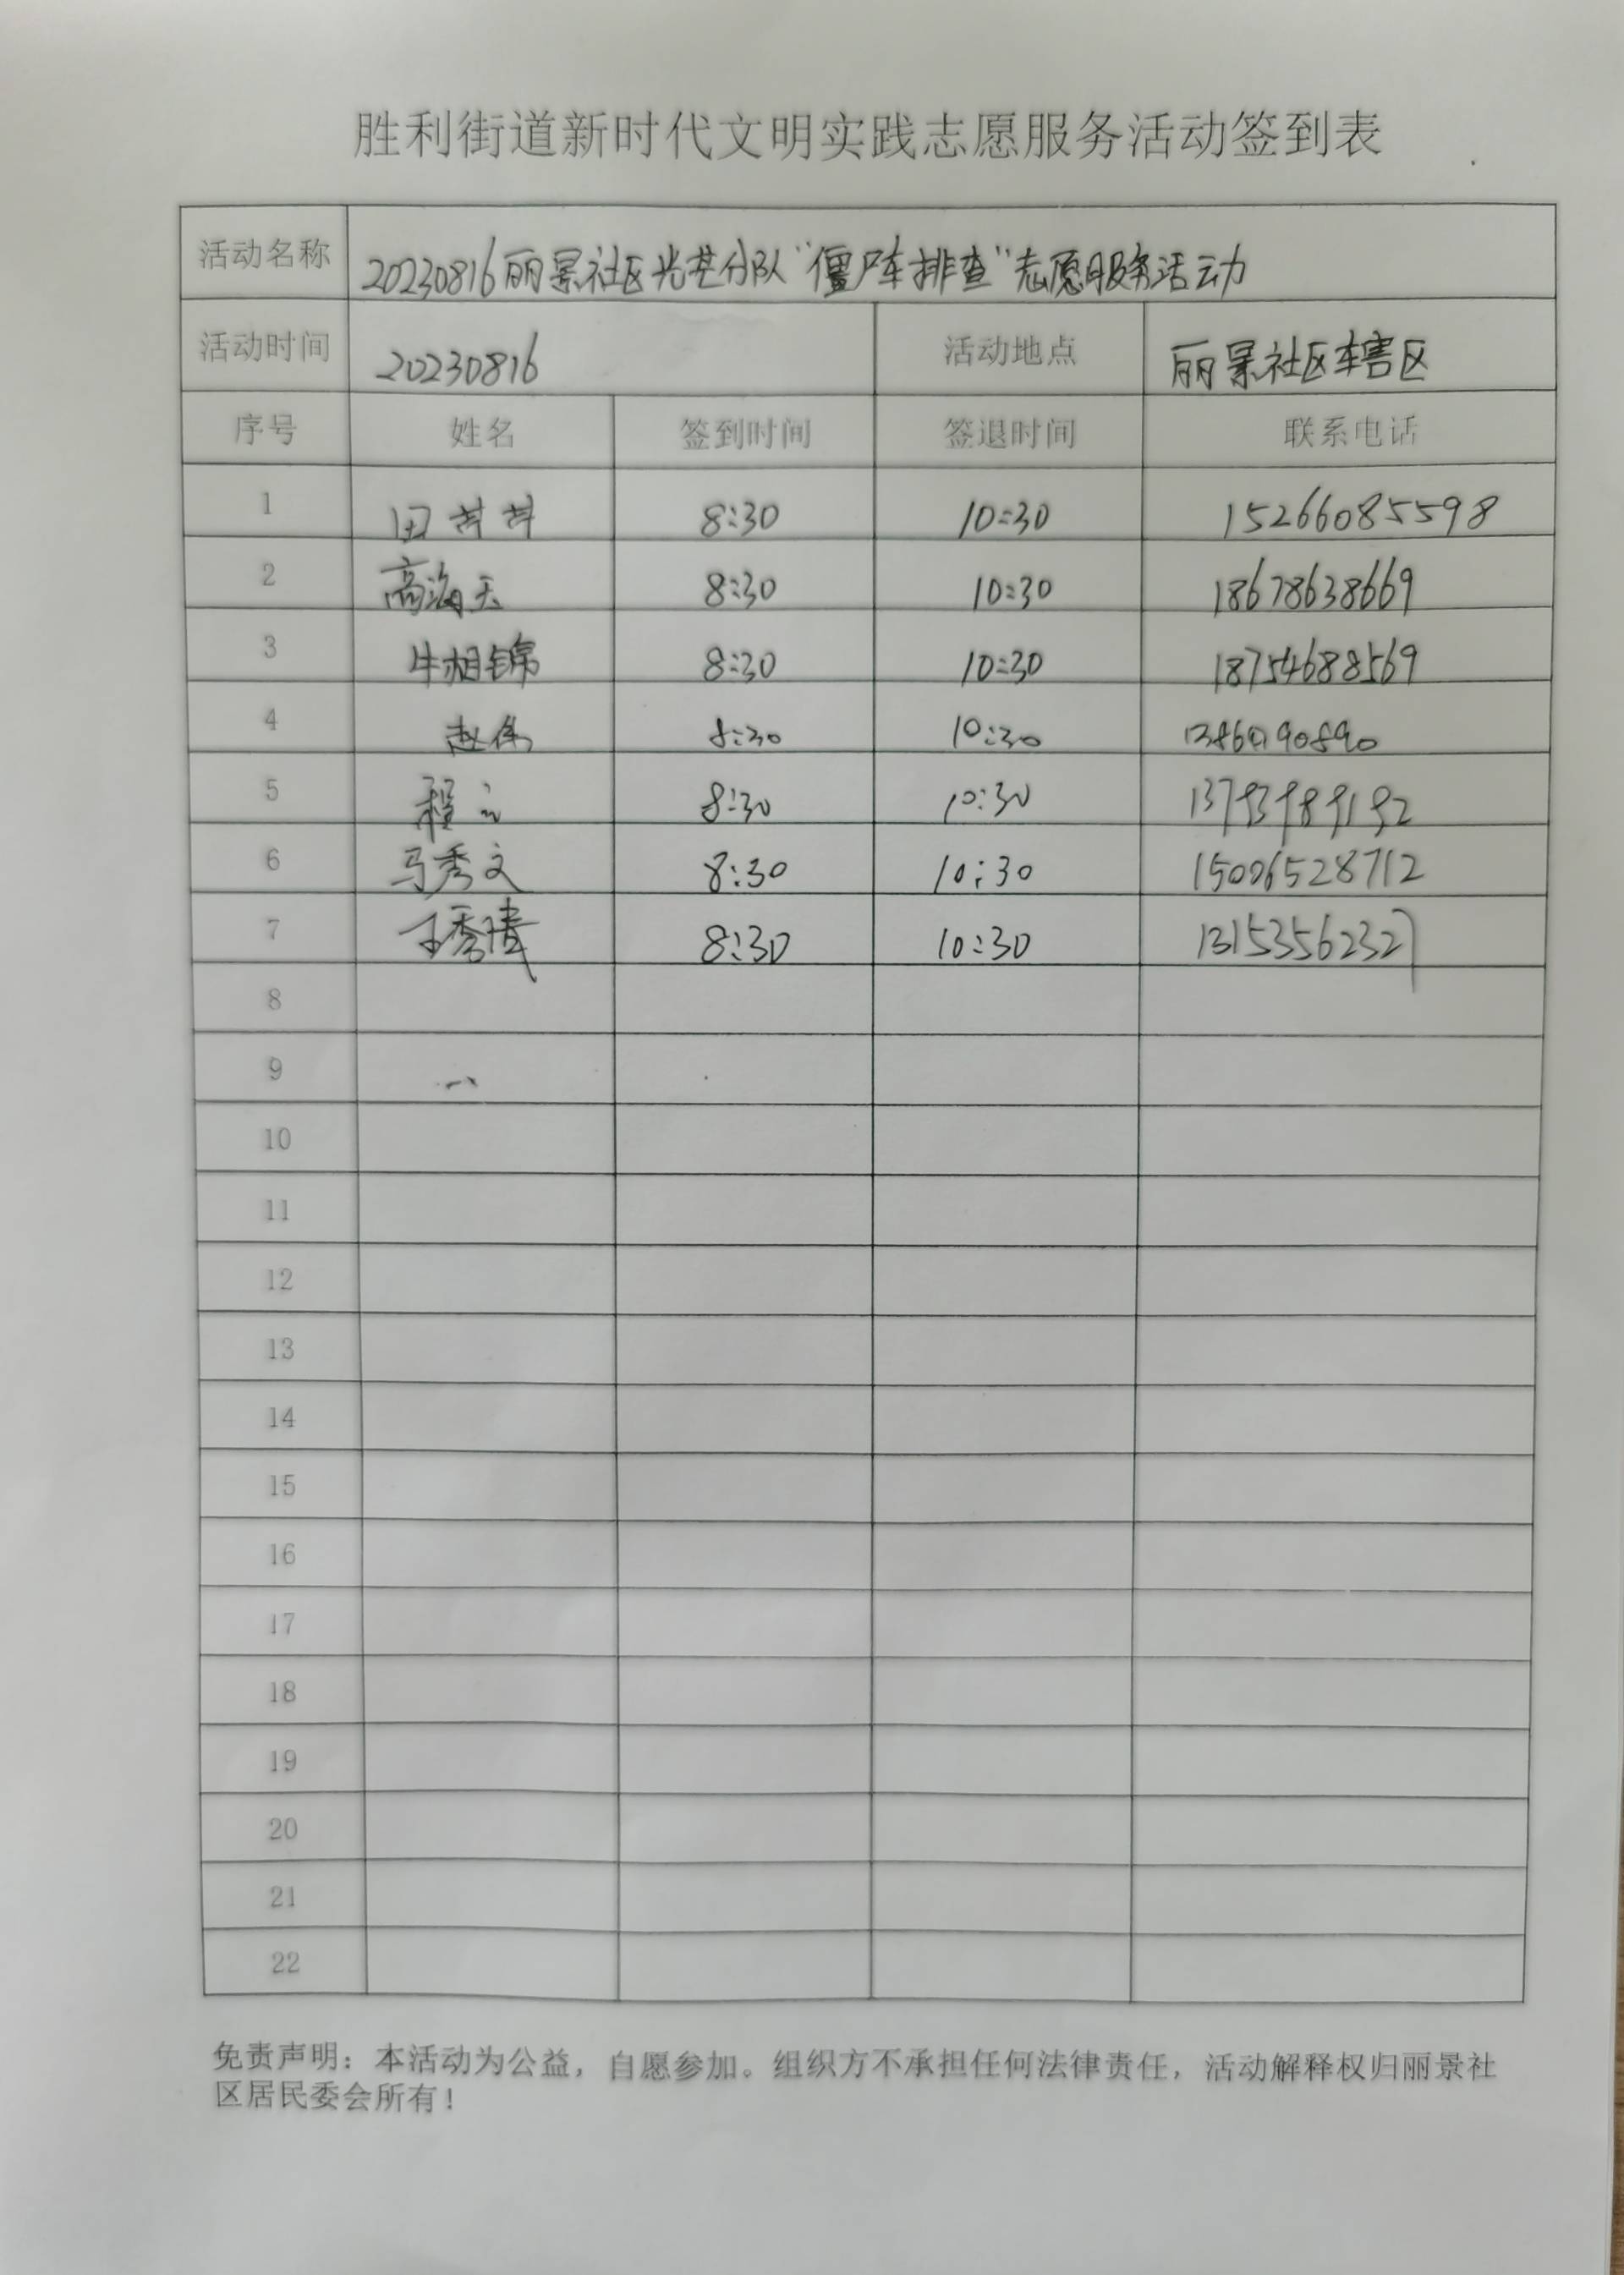 胜利街道新时代文明实践志愿服务活动签到表
活动名称 20230816丽景社区光芒分队“僵尸车排查”志愿服务活动
活动时间 20230816 活动地点 丽景社区辖区
序号 姓名 签到时间 签退时间 联系电话
1 田芊芊 8:30 10:30 15266085598
2 高海天 8:30 10:30 18678638669
3 牛相锦 8:30 10:30 18754688569
4 赵伟 8:30 10:30
5 程 8:30 10:30 13793989192
6 马秀文 8:30 10:30 15006528712
7 王秀清 8:30 10:30 13153562327
8
9
10
11
12
13
14
15
16
17
18
19
20
21
22
免责声明：本活动为公益，自愿参加。组织方不承担任何法律责任，活动解释权归丽景社
区居民委会所有！